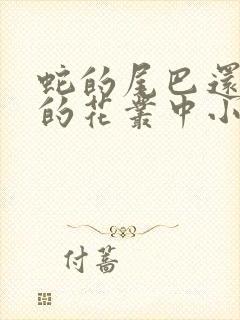 蛇的尾巴還
的花叢中小
付蕎